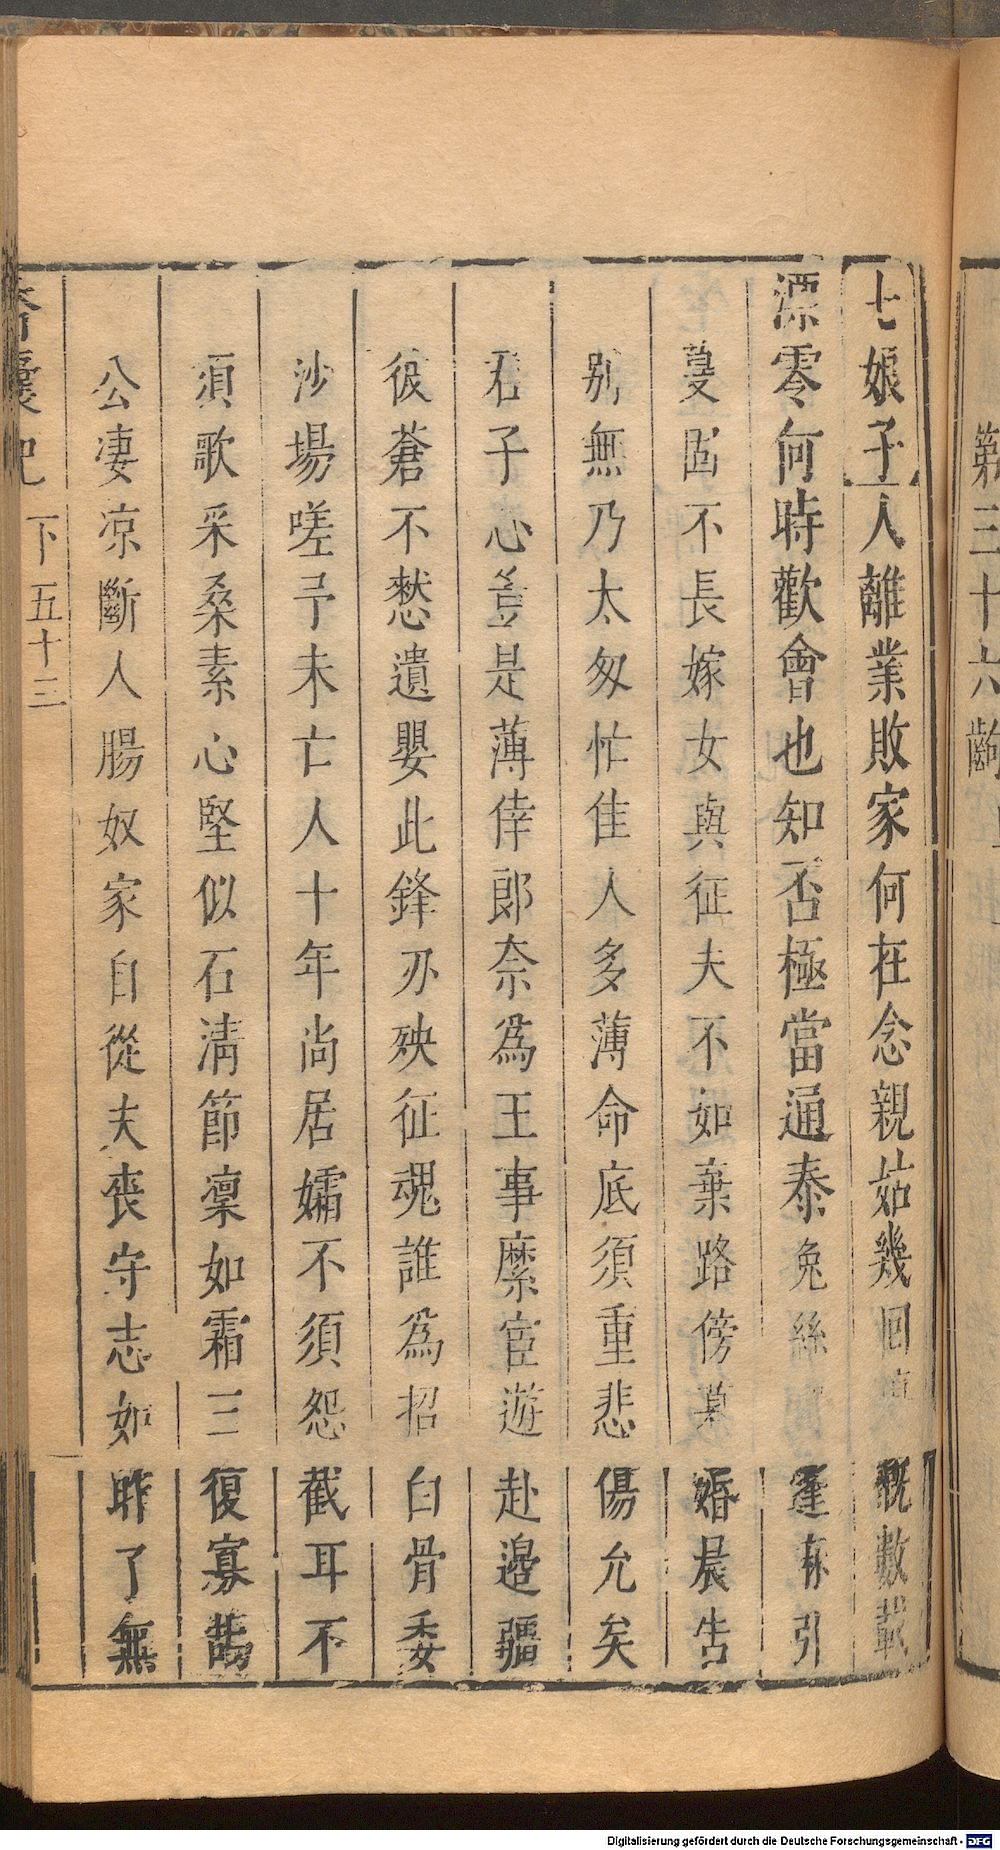 第三十六齣
七娘子人離業敗家何在念親姑幾回慨數載
漂零何時歡會也知否極當通泰兔絲蓬麻引
蔓固不長嫁女與征夫不如棄路傍暮婚晨告
別無乃太匆忙佳人多薄命底須重悲傷允矣
君子心豈是薄倖郎奈為王事縻宦遊赴邊疆
彼蒼不憖遺嬰此鋒刃殃征魂誰為招白骨委
沙場嗟予未亡人十年尚居孀不須怨截耳不
須歌采桑素心堅似石清節凜如霜三復寡鵠
公淒涼斷人腸奴家自從夫喪守志如昨了無
香囊記 下五十三
Digitalisierung gefördert durch die Deutsche Forschungsgemeinschaft - DFG